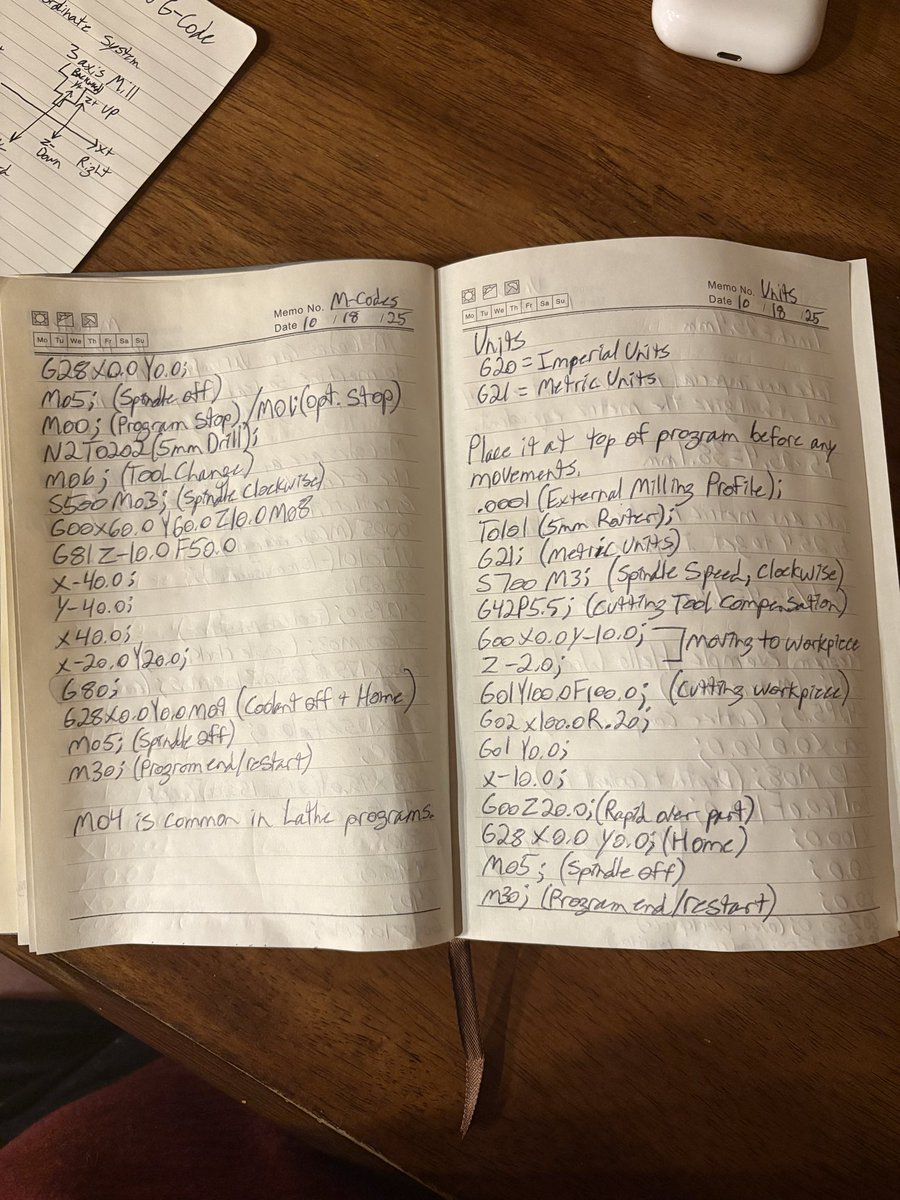 G-Code
ordinate System
3 axis Mill
Backward
Z+ Up
X+
Z-
Down
Right
Memo No. M-Codes
Date 10 / 18 / 25
Mo Tu We Th Fr Sa Su
G28 X0.0 Y0.0;
M05; (Spindle off)
M00; (Program Stop) /M01;(opt. Stop)
N2T0202(5mm Drill);
M06; (Tool Change)
S500 M03; (Spindle Clockwise)
G00X60.0 Y60.0 Z10.0 M08
G81 Z-10.0 F50.0
X-40.0;
Y-40.0;
X40.0;
X-20.0 Y20.0;
G80;
G28X0.0Y0.0M09 (Coolant off + Home)
M05; (Spindle off)
M30; (Program end/restart)
M04 is common in Lathe programs.
Memo No. Units
Date 10 / 18 / 25
Mo Tu We Th Fr Sa Su
Units
G20 = Imperial Units
G21 = Metric Units
Place it at top of program before any
movements.
.0001 (External Milling Profile);
T0101 (5mm Router);
G21; (Metric Units)
S700 M3; (Spindle Speed, Clockwise)
G42P5.5; (Cutting Tool Compensation)
G00 X0.0Y-10.0; Moving to workpiece
Z-2.0;
G01Y100.0F100.0; (Cutting workpiece)
G02 X100.0R.20;
G01 Y0.0;
X-10.0;
G00Z20.0;(Rapid over part)
G28 X0.0 Y0.0; (Home)
M05; (Spindle off)
M30; (Program end/restart)